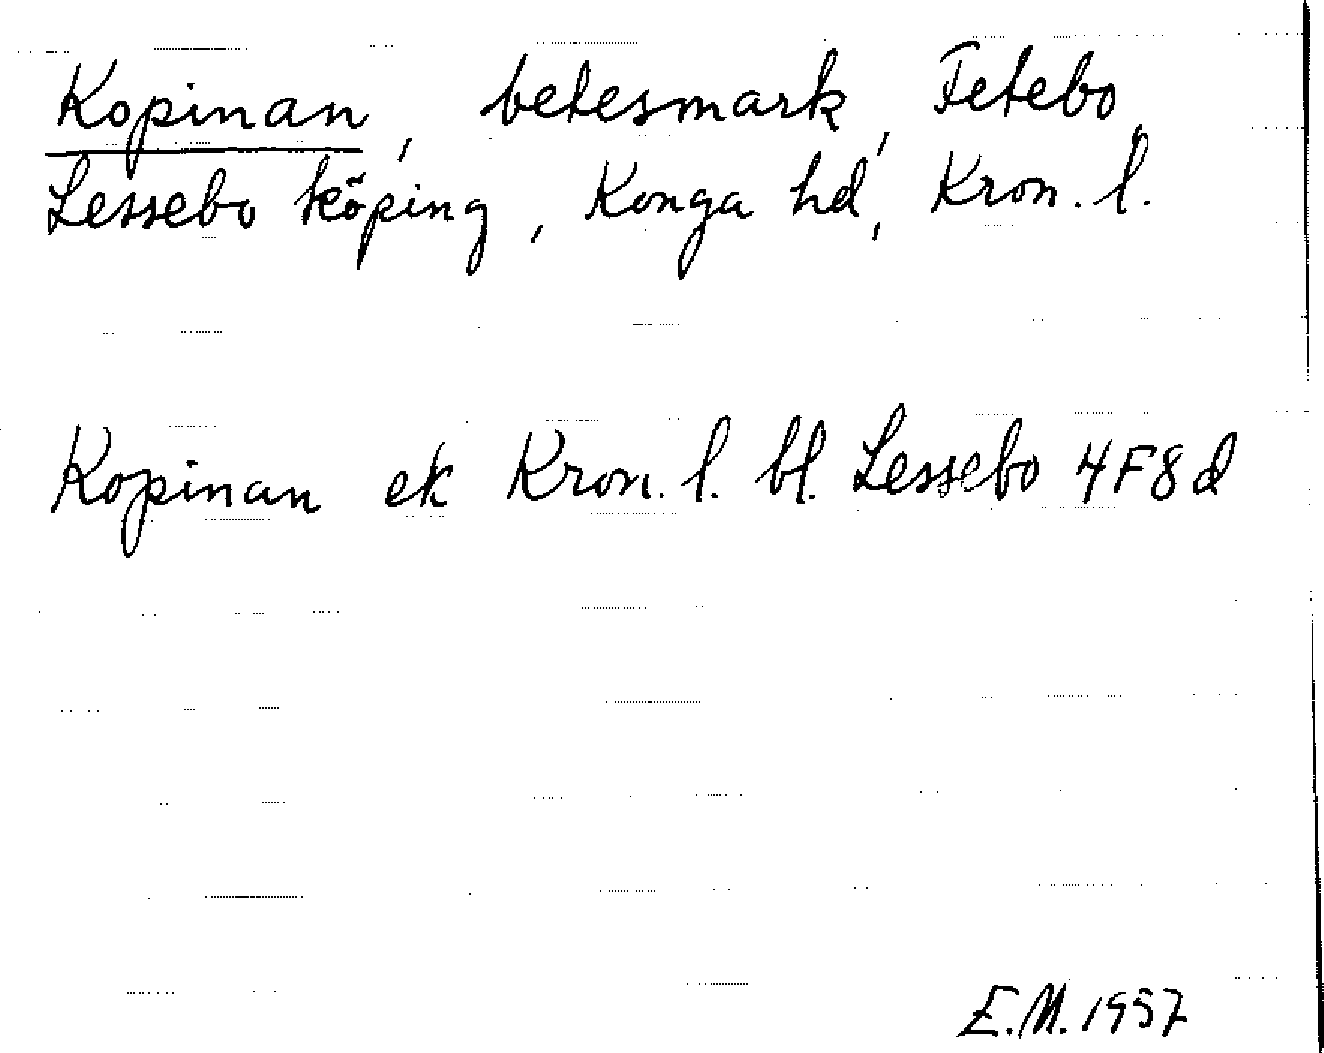 Kopinan, betesmark, Fetebo,
Lessebo köping, Konga hd, Kron. l.
Kopinan ek Kron. l. bl. Lessebo 4F8d
E.M. 1957